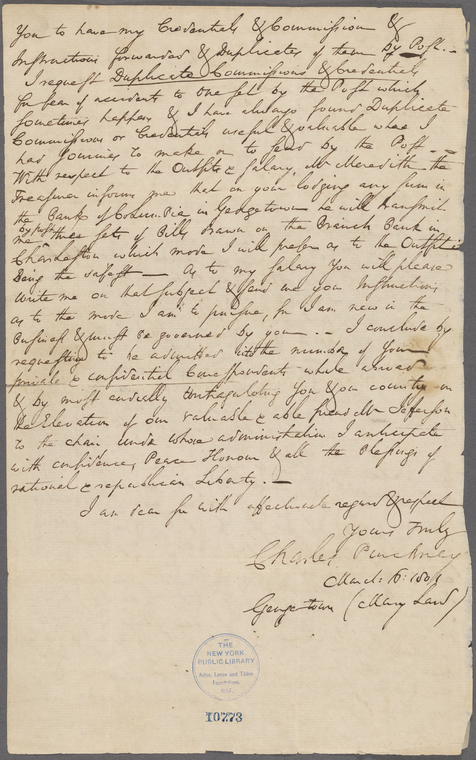 You to have my Credentials & Commission &
Instructions forwarded & Duplicates of them by Post. —
I request Duplicate Commissions & Credentials
for fear of accidents to one sett by the Post which
sometimes happens & I have always found Duplicate
Commissions or Credentials useful & valuable when I
had Journies to make or to send by the Post. — —
With respect to the Outfits & Salary, Mr Meredith the
Treasurer informs me that on your lodging any sum in
the Bank of Columbia in Georgetown he will transmit
by post
me three setts of Bills drawn on the Branch Bank in
Charleston which mode I will prefer as to the Outfit it
being the safest — as to my Salary You will please
write me on that subject & send me your Instructions
as to the mode I am to pursue, for I am new in the
business & must be governed by you — . I conclude by
requesting to be admitted into the number of Your
private & confidential Correspondents while abroad
& by most cordially Congratulating You & our country on
the Elevation of our valuable & able friend Mr Jefferson
to the chair under whose administration I anticipate
with confidence, Peace Honour & all the Blessings of
national & republican Liberty. —
I am dear sir with affectionate regard & respect
Yours Truly
Charles Pinckney
March: 6: 1801
George town (Mary Land)
THE
NEW YORK
PUBLIC LIBRARY
Astor, Lenox and Tilden
Foundations.
10773